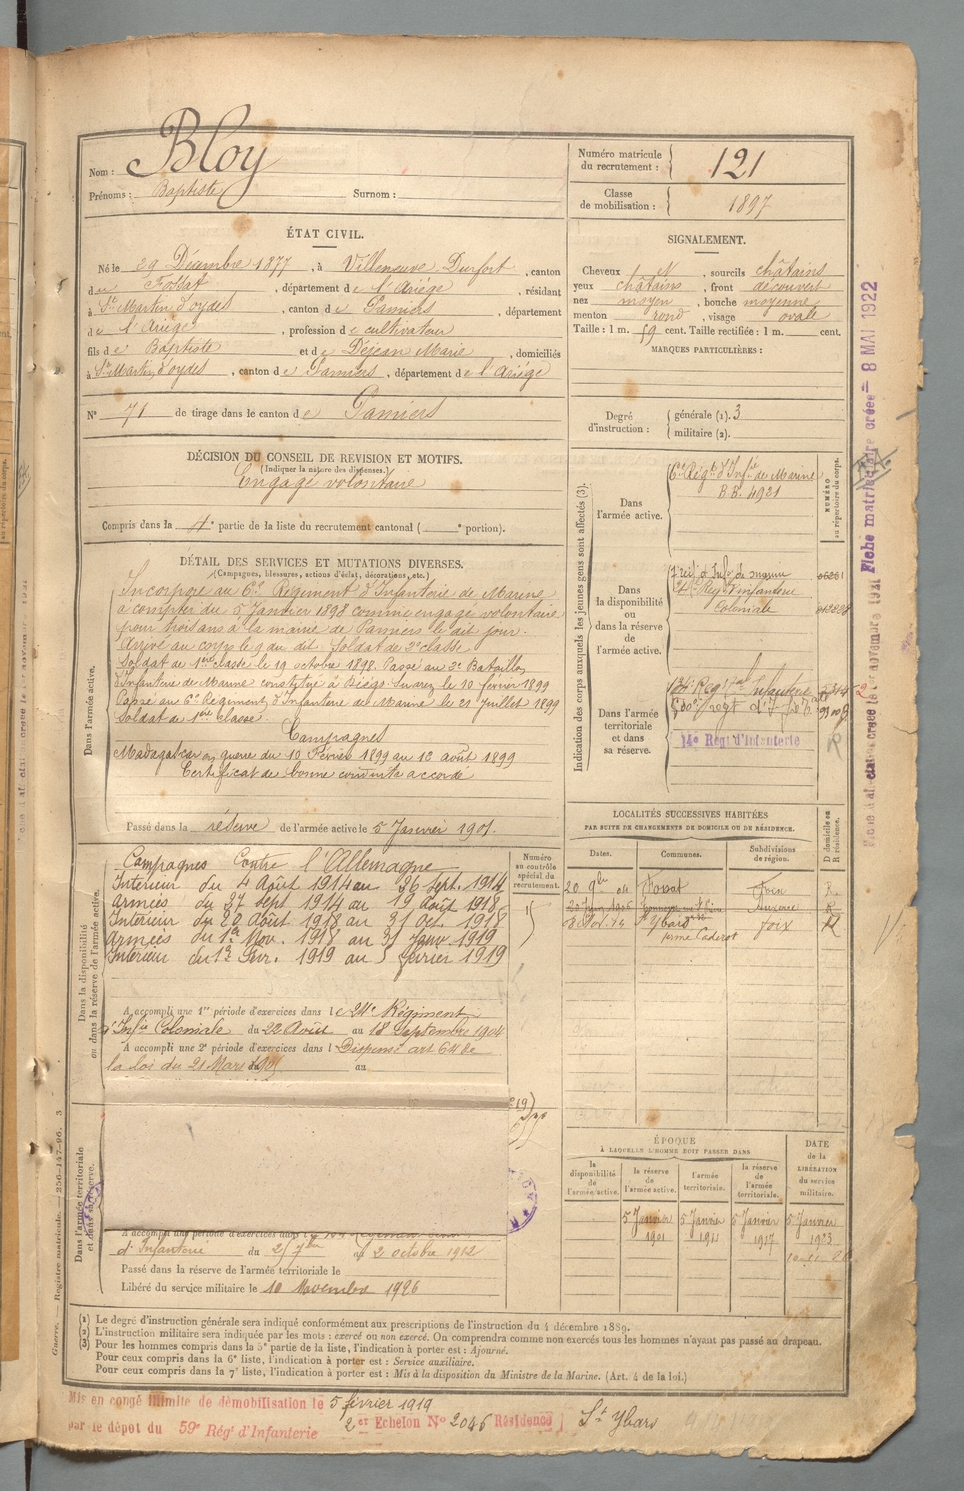 Nom : Bloy
Prénoms : Baptiste Surnom :
Numéro matricule du recrutement : 121
Classe de mobilisation : 1897
ÉTAT CIVIL.
Né le 29 Décembre 1877, à Villeneuve Durfort, canton
de Fossat, département de l'Ariège, résidant
à St Martin d'oydes, canton de Pamiers, département
de l'Ariège, profession de cultivateur
fils de Baptiste et de Déjean Marie, domiciliés
à St Martin d'oydes, canton de Pamiers, département de l'Ariège
N° 71 de tirage dans le canton de Pamiers
SIGNALEMENT.
Cheveux, sourcils châtains
yeux châtains, front découvert
nez moyen, bouche moyenne
menton rond, visage ovale
Taille : 1 m. 59 cent. Taille rectifiée : 1 m. cent.
MARQUES PARTICULIÈRES :
Degré d'instruction : générale (1). 3
militaire (2).
DÉCISION DU CONSEIL DE REVISION ET MOTIFS.
(Indiquer la nature des dispenses.)
Engagé volontaire
Compris dans la 4e partie de la liste du recrutement cantonal ( e portion).
DÉTAIL DES SERVICES ET MUTATIONS DIVERSES.
(Campagnes, blessures, actions d'éclat, décorations, etc.)
Dans l'armée active.
Incorporé au 6e Régiment d'Infanterie de Marine
à compter du 5 Janvier 1898 comme engagé volontaire
pour trois ans à la mairie de Pamiers le dit jour.
Arrivé au corps le 9 du dit. Soldat de 2e classe
Soldat de 1ère classe le 19 octobre 1898. Passé au 3e Bataillon
d'Infanterie de Marine constitué à Diégo-Suarez le 10 février 1899
Passé au 6e Régiment d'Infanterie de Marine le 21 Juillet 1899
Soldat de 1ère classe.
Campagnes
Madagascar en guerre du 10 Février 1899 au 12 août 1899
Certificat de bonne conduite accordé
Passé dans la réserve de l'armée active le 5 Janvier 1901.
Dans la disponibilité ou dans la réserve de l'armée active.
Campagnes Contre l'Allemagne
Intérieur du 4 Août 1914 au 26 Sept. 1914
Armées du 27 Sept 1914 au 19 Août 1918
Intérieur du 20 Août 1918 au 31 Oct. 1918
Armées du 1er Nov. 1918 au 31 Janv 1919
Intérieur du 1er Fevr. 1919 au 5 février 1919
A accompli une 1re période d'exercices dans le 24e Régiment
d'Infie Coloniale du 22 Août au 18 Septembre 1904
A accompli une 2e période d'exercices dans l Dispensé art 64 de
la loi du 21 Mars 1905 au
Dans l'armée territoriale et dans sa réserve.
A accompli une période d'exercices dans l
d'Infanterie du au 2 octobre 1912
Passé dans la réserve de l'armée territoriale le
Libéré du service militaire le 10 Novembre 1926
Numéro au contrôle spécial du recrutement.
Indication des corps auxquels les jeunes gens sont affectés (3).
NUMÉRO au répertoire du corps.
Dans l'armée active.
6e Régt d'Infie de Marine
BB. 4921
Dans la disponibilité ou dans la réserve de l'armée active.
24e Régt d'infanterie
Coloniale
Dans l'armée territoriale et dans sa réserve.
14e Régt d'Infanterie
LOCALITÉS SUCCESSIVES HABITÉES
PAR SUITE DE CHANGEMENTS DE DOMICILE OU DE RÉSIDENCE.
Dates. Communes. Subdivisions de région. D domicile ou R résidence.
20 9bre 04 Fossat Foix R.
Auxerre R
St Ybars Foix R
ferme Caderot
ÉPOQUE
À LAQUELLE L'HOMME DOIT PASSER DANS
DATE de la LIBÉRATION du service militaire.
la disponibilité de l'armée active. la réserve de l'armée active. l'armée territoriale. la réserve de l'armée territoriale.
5 Janvier 1901 5 Janvier 1911 5 Janvier 1917 5 Janvier 1923
(1) Le degré d'instruction générale sera indiqué conformément aux prescriptions de l'instruction du 4 décembre 1889.
(2) L'instruction militaire sera indiquée par les mots : exercé ou non exercé. On comprendra comme non exercés tous les hommes n'ayant pas passé au drapeau.
(3) Pour les hommes compris dans la 5e partie de la liste, l'indication à porter est : Ajourné.
Pour ceux compris dans la 6e liste, l'indication à porter est : Service auxiliaire.
Pour ceux compris dans la 7e liste, l'indication à porter est : Mis à la disposition du Ministre de la Marine. (Art. 4 de la loi.)
Mis en congé illimité de démobilisation le 5 février 1919
par le dépot du 59e Régt d'Infanterie 2er Echelon N° 2046 Résidence St Ybars
Guerre. — Registre matricule. — 256-147-96. 3
Fiche matriculaire créée = 8 MAI 1922